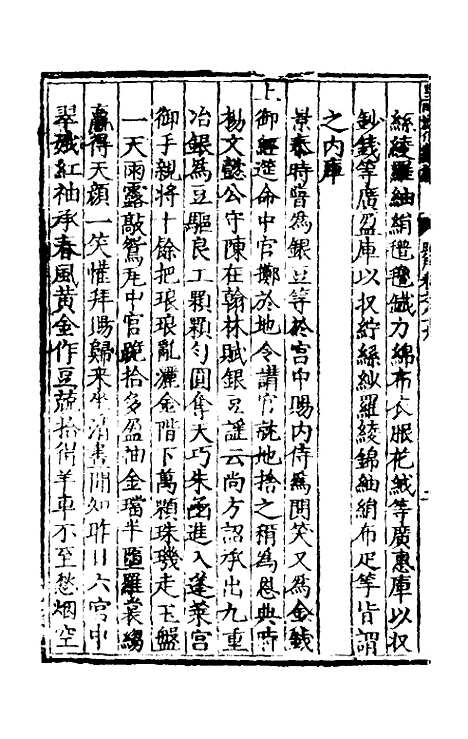 絲綾羅紬絹氁氌𣰽力綿布衣服花絨等廣惠庫以収
鈔錢等廣盈庫以収紵絲紗羅綾錦紬絹布疋等皆謂
之内庫
景泰時嘗為銀豆等於宮中賜内侍為閧笑又為金錢
上御經筵命中官擲於地令講官就地拾之稱為恩典時
楊文懿公守陳在翰林賦銀豆謡云尚方認承出九重
冶銀為豆驅良工顆顆勻圓奪天巧朱函進入蓬萊宮
御手親將十餘把琅琅亂灑金階下萬顆珠璣走玉盤
一天雨露敲鴛瓦中官跪拾多盈袖金璫半墮羅裳縐
贏得天顔一笑懽拜賜歸來坐清晝聞知昨日六宮中
翠娥紅袖承春風黃金作豆競拾得羊車不至愁烟空